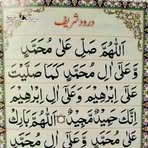 درود شریف
اَللّٰهُمَّ صَلِّ عَلٰى مُحَمَّدٍ
وَّعَلٰٓى اٰلِ مُحَمَّدٍ كَمَا صَلَّيْتَ
عَلٰٓى اِبْرٰهِيْمَ وَعَلٰٓى اٰلِ اِبْرٰهِيْمَ
اِنَّكَ حَمِيْدٌ مَّجِيْدٌ ۝ اَللّٰهُمَّ بَارِكْ
عَلٰى مُحَمَّدٍ وَّعَلٰٓى اٰلِ مُحَمَّدٍ